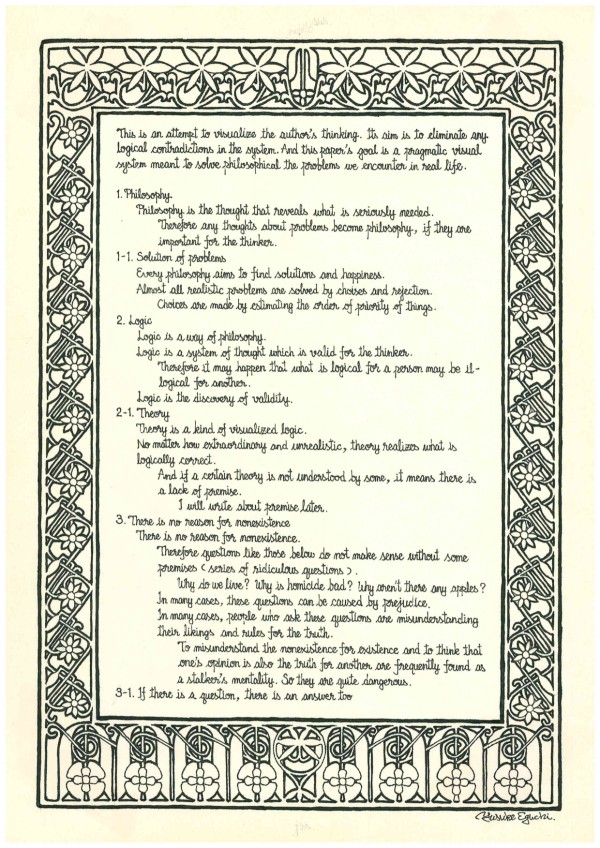 This is an attempt to visualize the author's thinking. Its aim is to eliminate any
logical contradictions in the system. And this paper's goal is a pragmatic visual
system meant to solve philosophical the problems we encounter in real life.
1. Philosophy
Philosophy is the thought that reveals what is seriously needed.
Therefore any thoughts about problems become philosophy, if they are
important for the thinker.
1-1. Solution of problems
Every philosophy aims to find solutions and happiness.
Almost all realistic problems are solved by choises and rejection.
Choices are made by estimating the order of priority of things.
2. Logic
Logic is a way of philosophy.
Logic is a system of thought which is valid for the thinker.
Therefore it may happen that what is logical for a person may be il-
logical for another.
Logic is the discovery of validity.
2-1. Theory
Theory is a kind of visualized logic.
No matter how extraordinary and unrealistic, theory realizes what is
logically correct.
And if a certain theory is not understood by some, it means there is
a lack of premise.
I will write about premise later.
3. There is no reason for nonexistence
There is no reason for nonexistence.
Therefore questions like those below do not make sense without some
premises (series of ridiculous questions).
Why do we live? Why is homicide bad? Why aren't there any apples?
In many cases, these questions can be caused by prejudice.
In many cases, people who ask these questions are misunderstanding
their likings and rules for the truth.
To misunderstand the nonexistence for existence and to think that
one's opinion is also the truth for another are frequently found as
a stalker's mentality. So they are quite dangerous.
3-1. If there is a question, there is an answer too
Eguchi.